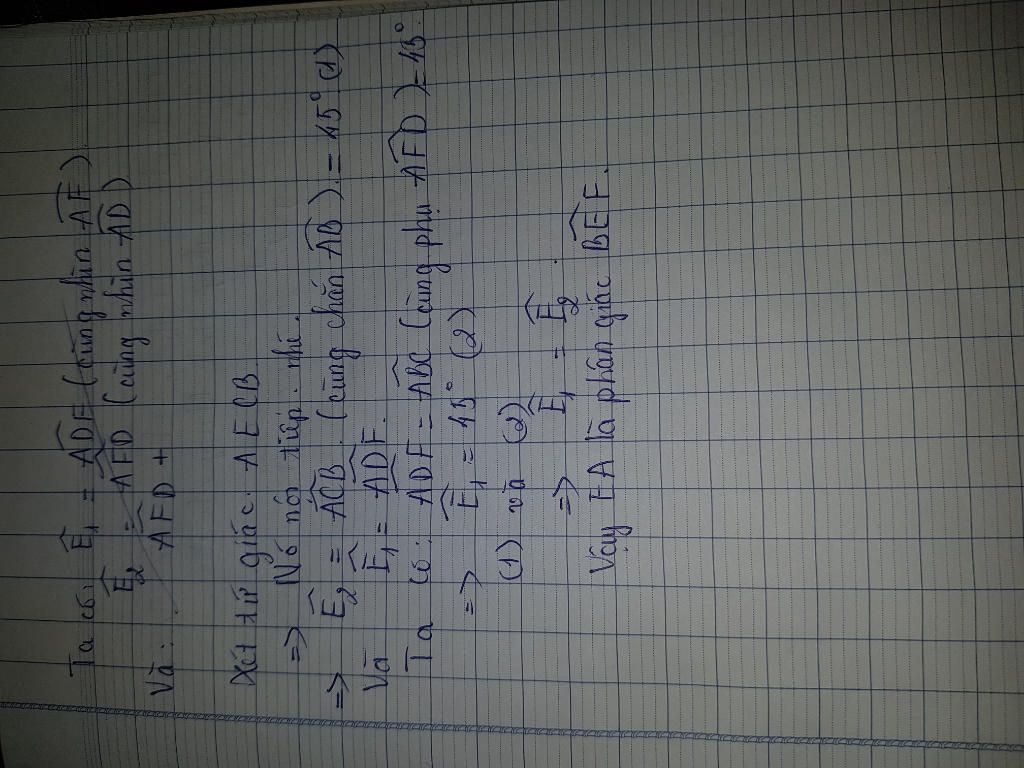 Ta có: Ê₁ = ADF (cùng nhìn AF)
Ê₂ = AFD (cùng nhìn AD)
Và: AFD +
Xét tứ giác AECB
=> Nó nội tiếp nhé.
=> Ê₂ = ACB (cùng chắn AB) = 45° (1)
Và Ê₁ = ADF.
Ta có: ADF = ABC (cùng phụ AFD) = 45°
=> Ê₁ = 45° (2)
(1) và (2)
=> Ê₁ = Ê₂.
Vậy EA là phân giác BEF.